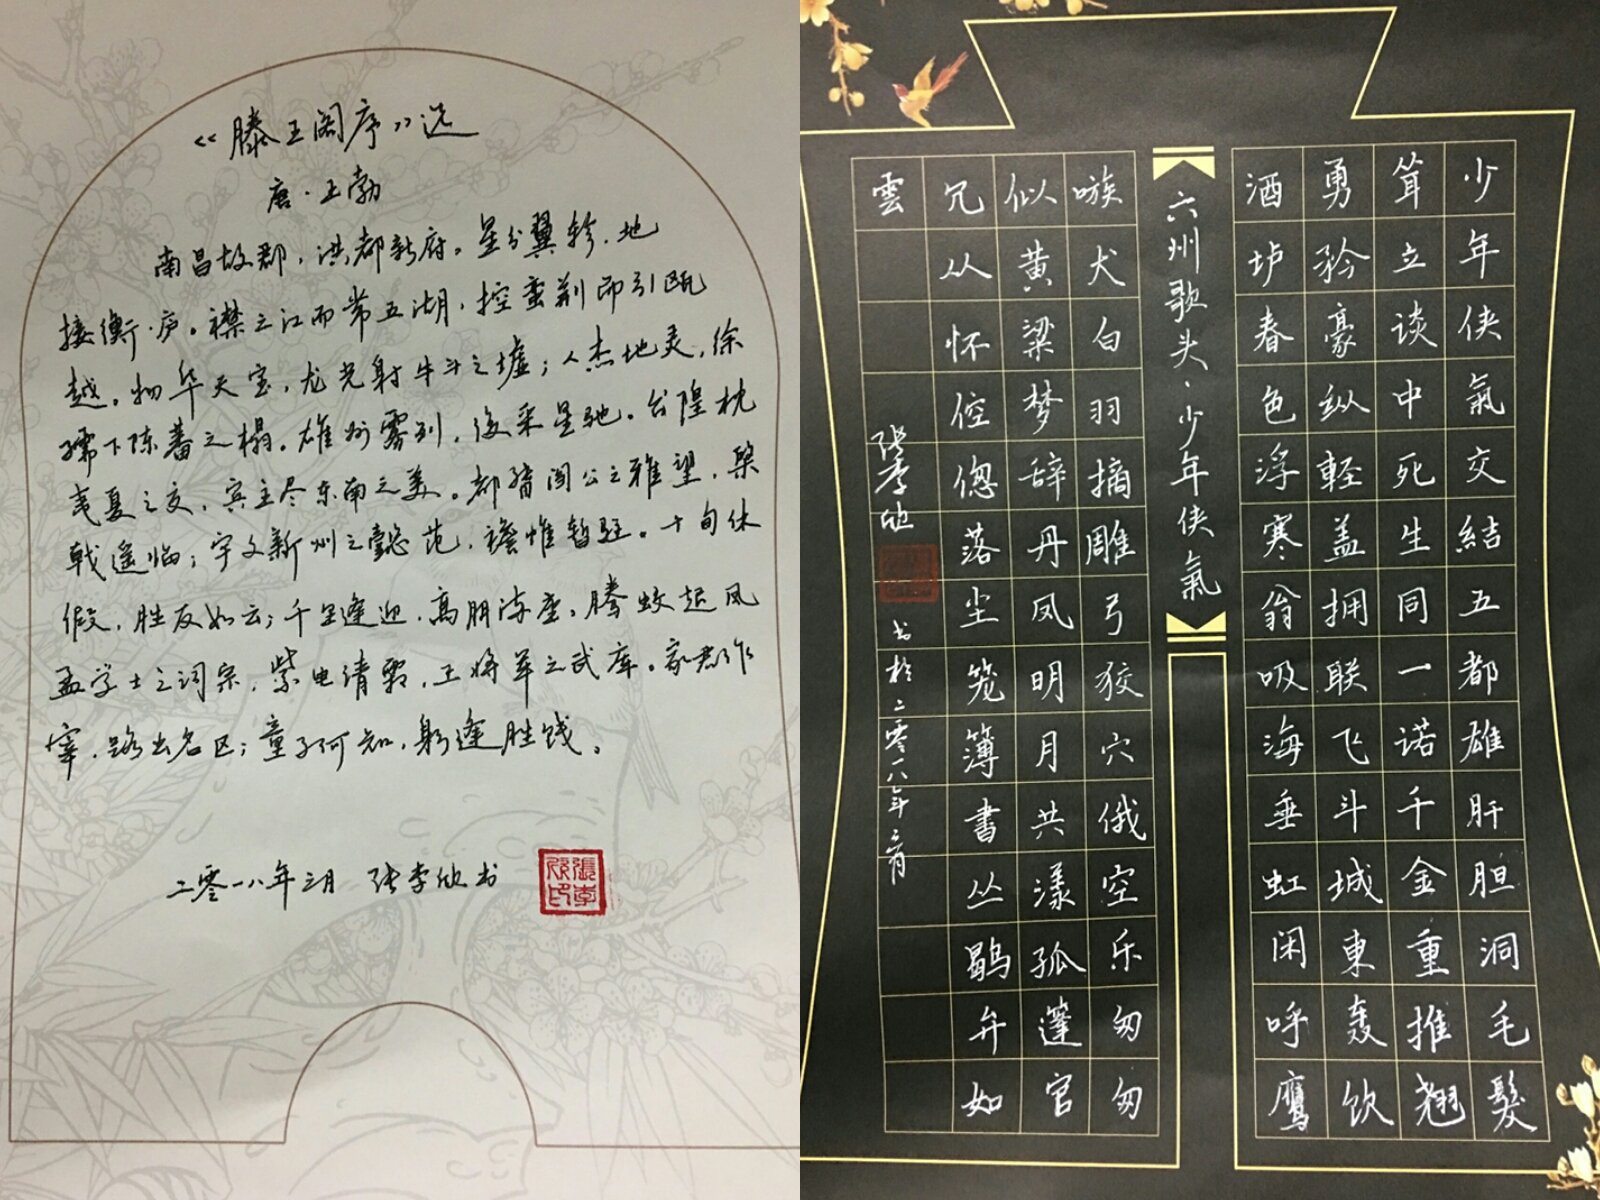 《滕王阁序》选
唐·王勃
南昌故郡,洪都新府。星分翼轸,地
接衡·庐。襟三江而带五湖,控蛮荆而引瓯
越。物华天宝,龙光射牛斗之墟;人杰地灵,徐
孺下陈蕃之榻。雄州雾列,俊采星驰。台隍枕
夷夏之交,宾主尽东南之美。都督阎公之雅望,棨
戟遥临;宇文新州之懿范,襜帷暂驻。十旬休
假,胜友如云;千里逢迎,高朋满座。腾蛟起凤
孟学士之词宗,紫电清霜,王将军之武库。家君作
宰,路出名区;童子何知,躬逢胜饯。
二零一八年三月 张李欣书
張李欣印
少年侠氣交結五都雄肝胆洞毛髮
耸立谈中死生同一诺千金重推翘
勇矜豪纵輕盖拥联飞斗城東轰饮
酒垆春色浮寒翁吸海垂虹闲呼鹰
六州歌头·少年侠氣
嗾犬白羽摘雕弓狡穴俄空乐匆匆
似黄粱梦辞丹凤明月共漾孤蓬官
冗从怀倥偬落尘笼簿書丛鶡弁如
雲
张李欣 书於二零一八年